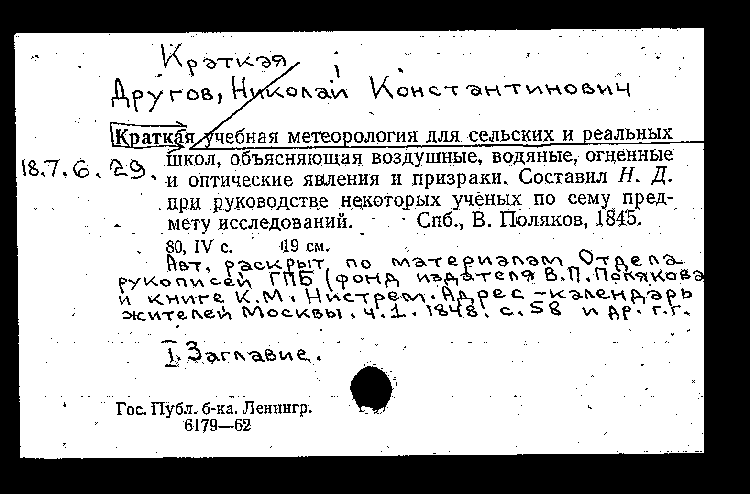 Краткая
Другов, Николай Константинович
Краткая учебная метеорология для сельских и реальных
18.7.6.29. школ, объясняющая воздушные, водяные, огненные
и оптические явления и призраки. Составил Н. Д.
при руководстве некоторых ученых по сему пред-
мету исследований. Спб., В. Поляков, 1845.
80, IV с. 19 см.
Авт. раскрыт по материалам Отдела
рукописей ГПБ (фонд издателя В.П. Полякова
и книге К.М. Нистрем. Адрес-календарь
жителей Москвы. ч.1. 1848. с. 58 и др. г.г.
I. Заглавие.
Гос. Публ. б-ка. Ленингр.
6179—62